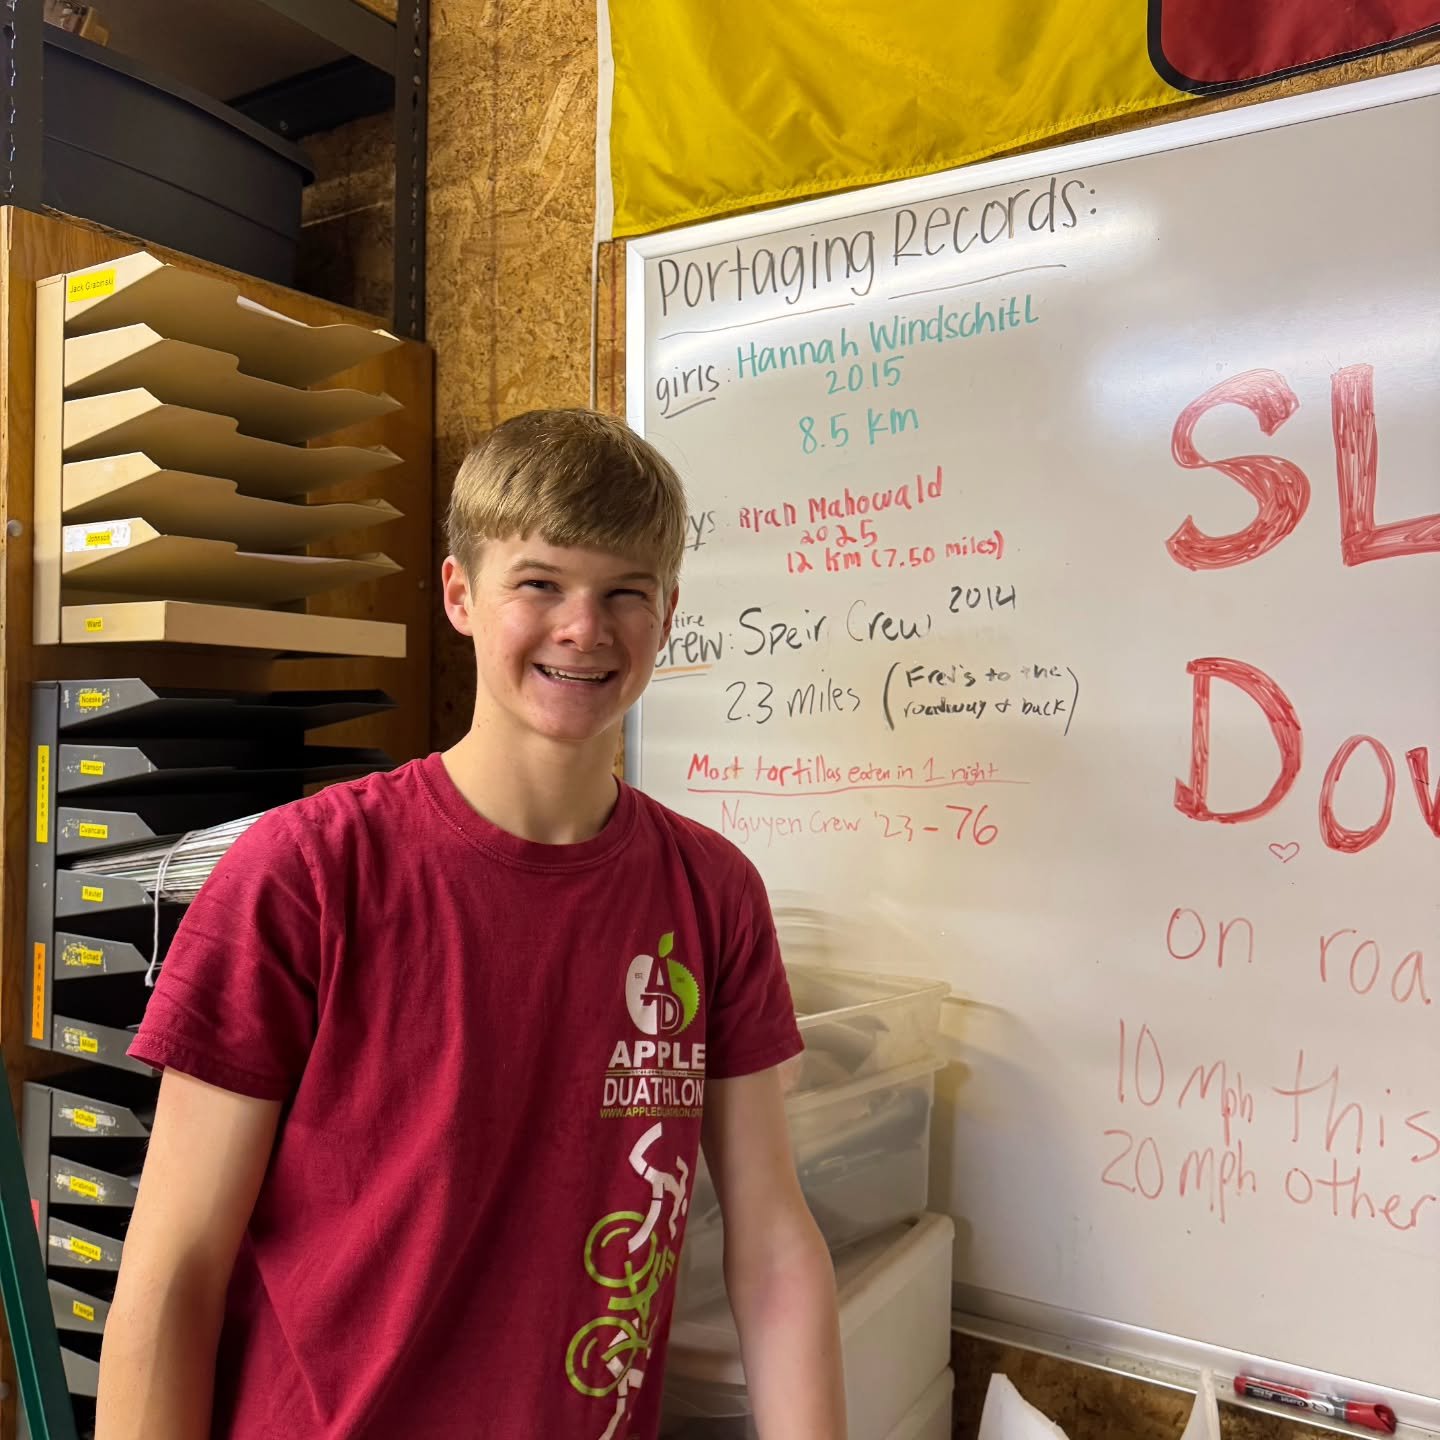 Portaging Records:
girls: Hannah Windschitl
2015
8.5 km
ys: Ryan Mahowald
2025
12 km (7.50 miles)
tire
crew: Speir Crew 2014
2.3 miles (Fred's to the
roadway & back)
Most tortillas eaten in 1 night
Nguyen Crew '23 - 76
SL
Dow
on roa
10 mph this
20 mph other
Jack Grabinski
Johnson
Ward
Noeske
Session 1
Hanson
Cvancara
Reuter
Schad
Miller
Schulte
Grabinski
Kluempke
EST.
AD
APPLE
DUATHLON
WWW.APPLEDUATHLON.ORG